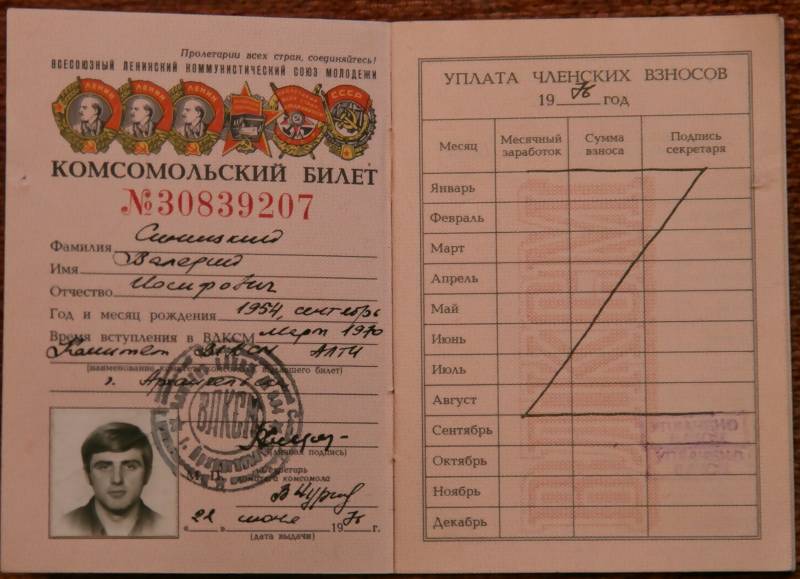 Пролетарии всех стран, соединяйтесь!
ВСЕСОЮЗНЫЙ ЛЕНИНСКИЙ КОММУНИСТИЧЕСКИЙ СОЮЗ МОЛОДЕЖИ
ЛЕНИН ЛЕНИН ЛЕНИН СССР
КОМСОМОЛЬСКИЙ БИЛЕТ
№30839207
Фамилия Синицкий
Имя Валерий
Отчество Иосифович
Год и месяц рождения 1954, сентябрь
Время вступления в ВЛКСМ март 1970
Комитет ВЛКСМ АЛТИ
г. Архангельск
ВЛКСМ
(личная подпись)
М. П.
Секретарь
комитета комсомола
„22" июня 1976 г.
(дата выдачи)
УПЛАТА ЧЛЕНСКИХ ВЗНОСОВ
1976 год
Месяц Месячный заработок Сумма взноса Подпись секретаря
Январь
Февраль
Март
Апрель
Май
Июнь
Июль
Август
Сентябрь
Октябрь
Ноябрь
Декабрь
ВЛКСМ